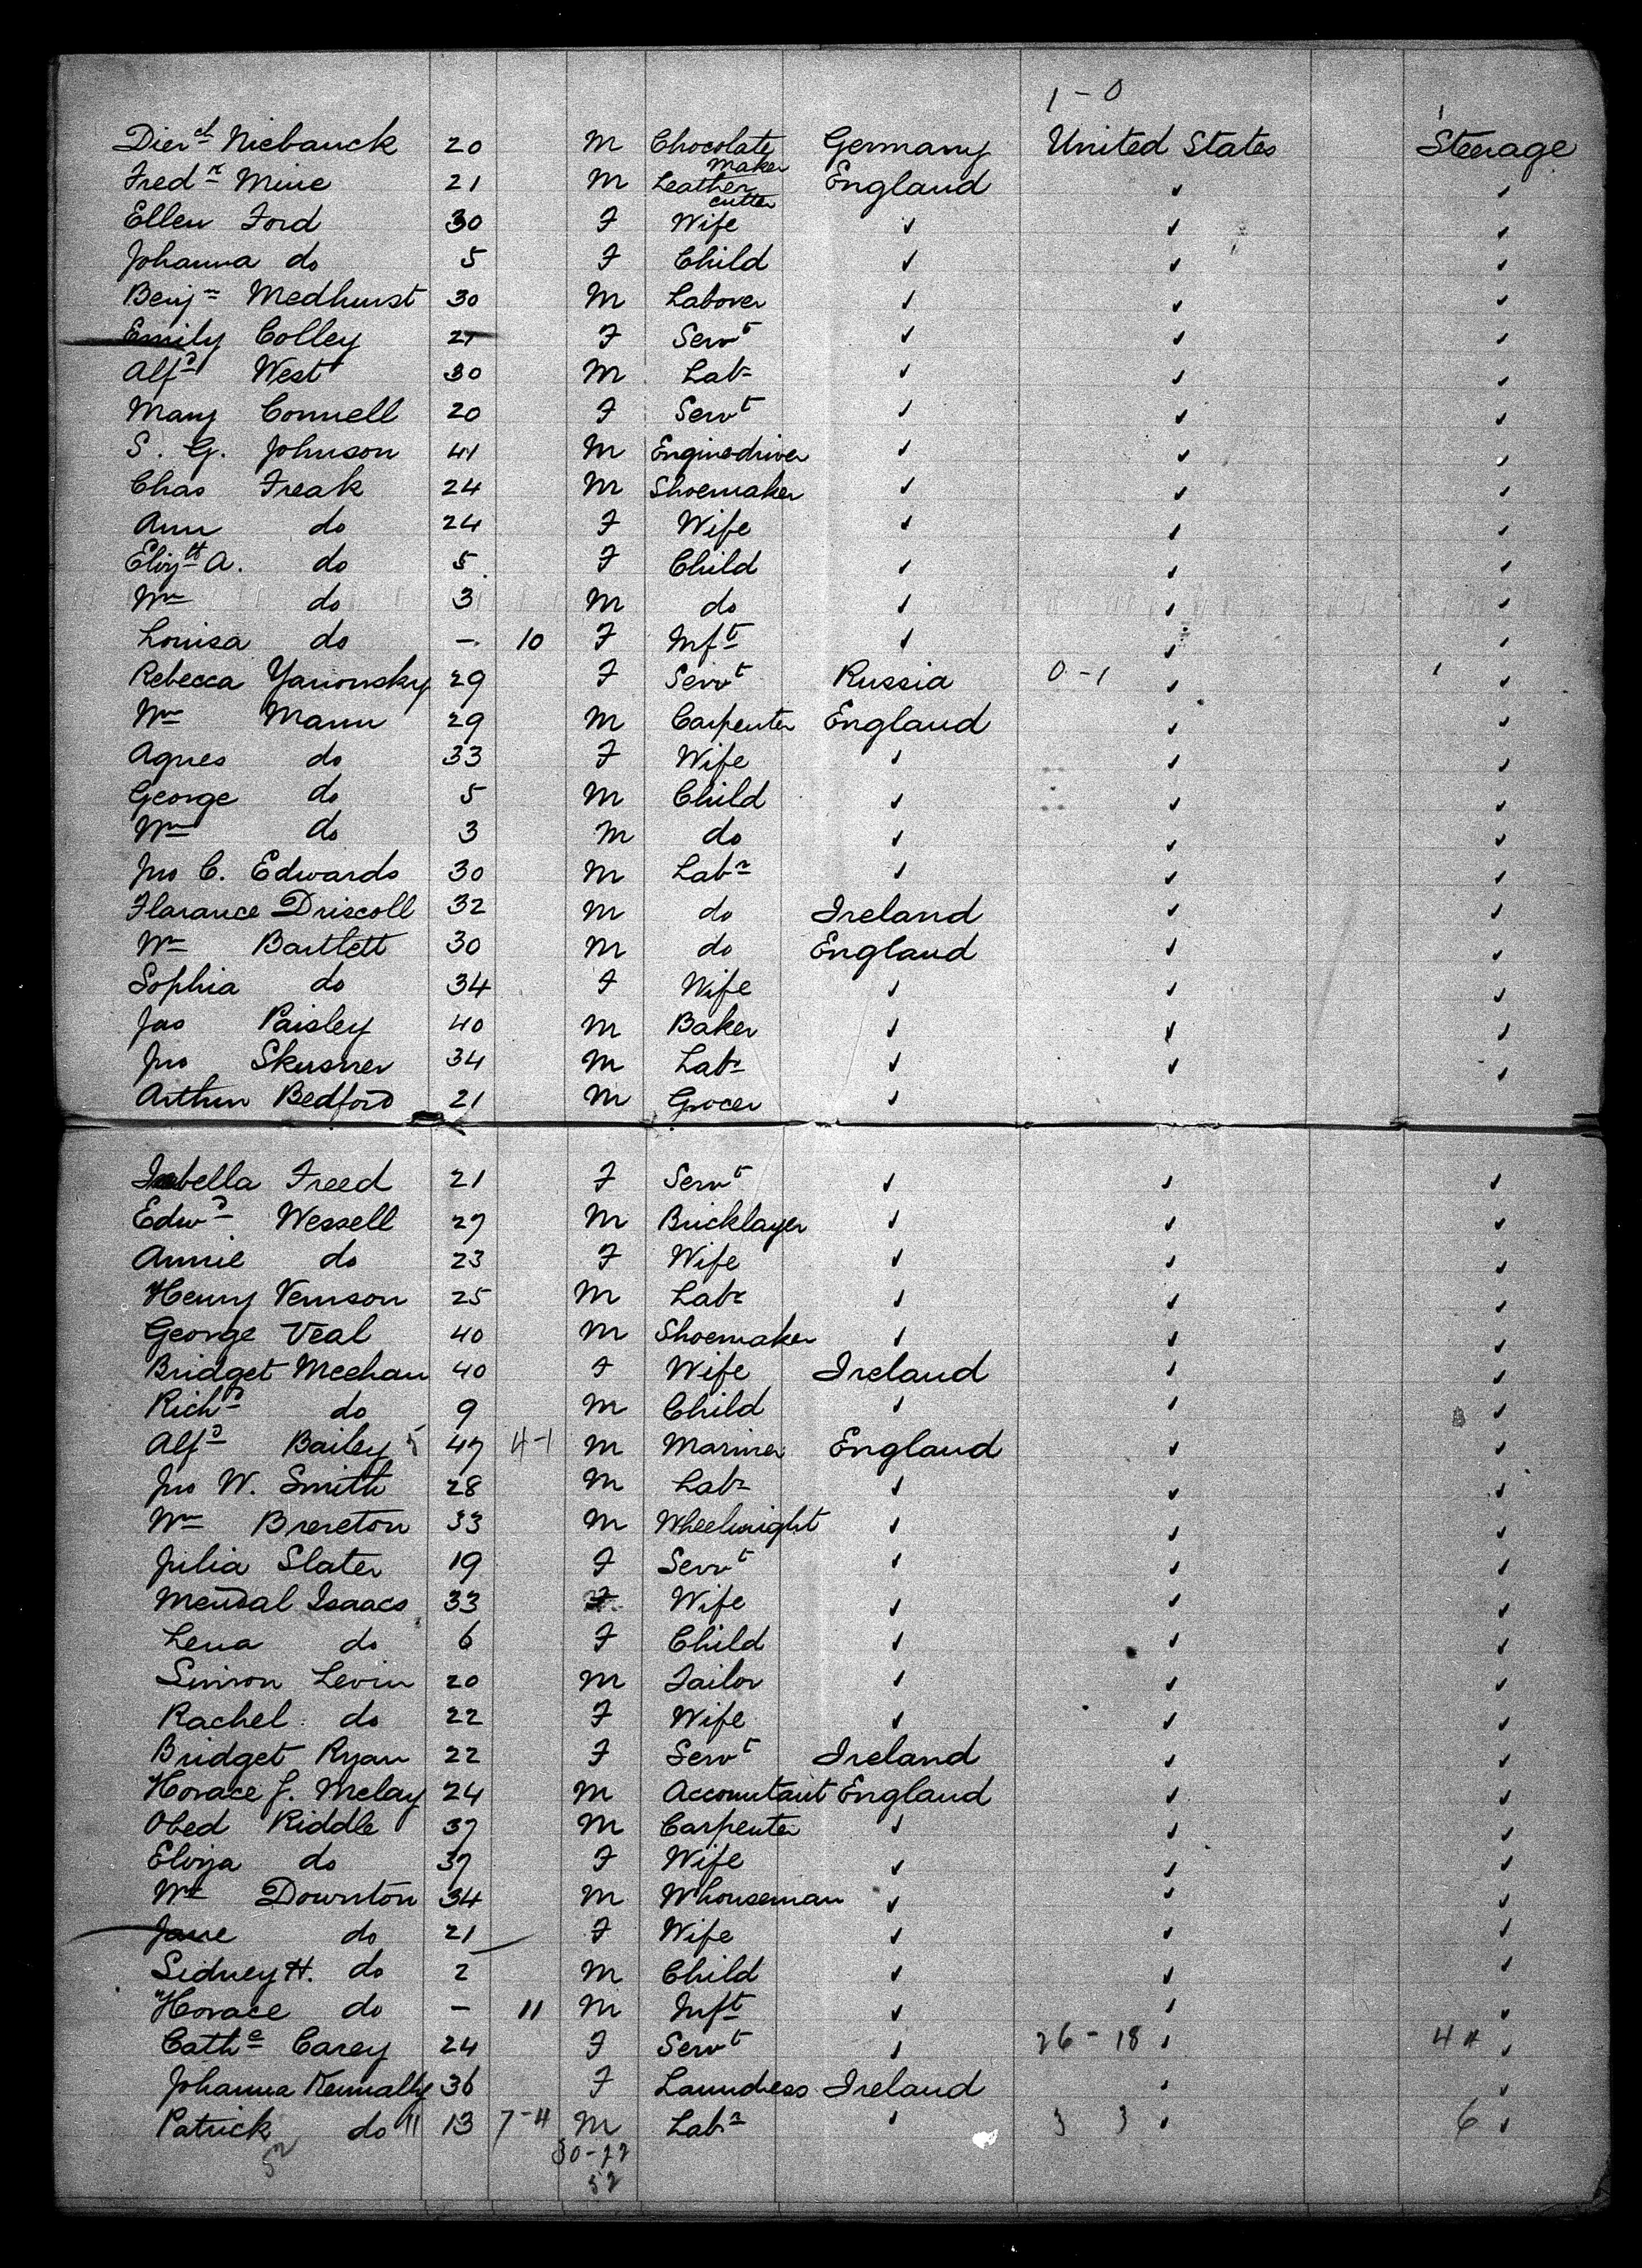 1 - 0 1
Dier^ch Niebanck 20 M Chocolate maker Germany United States Steerage
Fred^k Mine 21 M Leather cutter England ✓ ✓
Ellen Ford 30 F Wife ✓ ✓ ✓
Johanna do 5 F Child ✓ ✓ ✓
Benj^n Medhurst 30 M Laborer ✓ ✓ ✓
Emily Colley 27 F Serv^t ✓ ✓ ✓
Alf^d West 30 M Lab^r ✓ ✓ ✓
Mary Connell 20 F Serv^t ✓ ✓ ✓
S. G. Johnson 41 M Enginedriver ✓ ✓ ✓
Chas Freak 24 M Shoemaker ✓ ✓ ✓
Ann do 24 F Wife ✓ ✓ ✓
Eliz^th A. do 5 F Child ✓ ✓ ✓
W^m do 3 M do ✓ ✓ ✓
Louisa do - 10 F Inf^t ✓ ✓ ✓
Rebecca Yanonsky 29 F Serv^t Russia 0 - 1 ✓ 1 ✓
W^m Mann 29 M Carpenter England ✓ ✓
Agnes do 33 F Wife ✓ ✓ ✓
George do 5 M Child ✓ ✓ ✓
W^m do 3 M do ✓ ✓ ✓
Jno C. Edwards 30 M Lab^r ✓ ✓ ✓
Flarance Driscoll 32 M do Ireland ✓ ✓
W^m Bartlett 30 M do England ✓ ✓
Sophia do 34 F Wife ✓ ✓ ✓
Jas Paisley 40 M Baker ✓ ✓ ✓
Jno Skusner 34 M Lab^r ✓ ✓ ✓
Arthur Bedford 21 M Grocer ✓
Isabella Freed 21 F Serv^t ✓ ✓ ✓
Edw^d Wessell 27 M Bricklayer ✓ ✓ ✓
Annie do 23 F Wife ✓ ✓ ✓
Henry Vernson 25 M Lab^r ✓ ✓ ✓
George Veal 40 M Shoemaker ✓ ✓ ✓
Bridget Meehan 40 F Wife Ireland ✓ ✓
Rich^d do 9 M Child ✓ ✓ ✓
Alf^d Bailey 5 47 4-1 M Mariner England ✓ ✓
Jno W. Smith 28 M Lab^r ✓ ✓ ✓
W^m Brereton 33 M Wheelwright ✓ ✓ ✓
Julia Slater 19 F Serv^t ✓ ✓ ✓
Mendal Isaacs 33 F Wife ✓ ✓ ✓
Lena do 6 F Child ✓ ✓ ✓
Simon Levin 20 M Tailor ✓ ✓ ✓
Rachel do 22 F Wife ✓ ✓ ✓
Bridget Ryan 22 F Serv^t Ireland ✓ ✓
Horace J. Melay 24 M Accountant England ✓ ✓
Obed Riddle 37 M Carpenter ✓ ✓ ✓
Eliza do 37 F Wife ✓ ✓ ✓
W^m Downton 34 M Whouseman ✓ ✓ ✓
Jane do 21 F Wife ✓ ✓ ✓
Sidney H. do 2 M Child ✓ ✓ ✓
Horace do - 11 M Inf^t ✓ ✓ ✓
Cath^e Carey 24 F Serv^t ✓ 26 - 18 ✓ 44 ✓
Johanna Kennally 36 F Laundress Ireland ✓ ✓
Patrick do 11 13 7-4 M Lab^r ✓ 3 3 ✓ 6 ✓
52 30-22
52